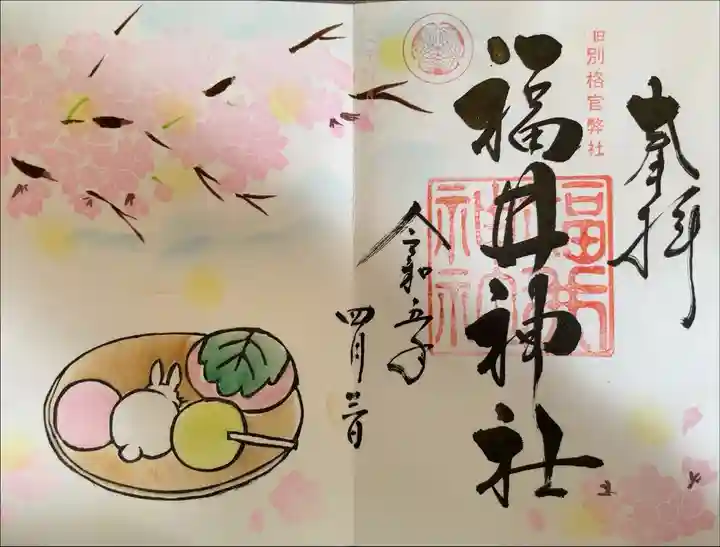 奉拝
旧別格官幣社
福井神社
令和五年
四月三日